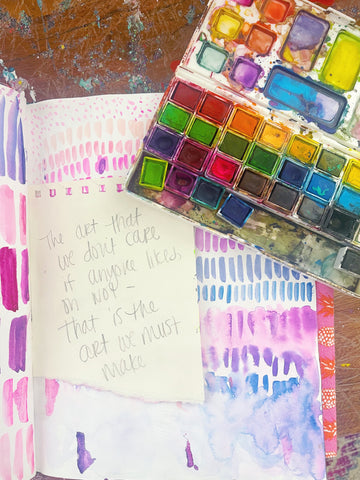 The art that
we don't care
if anyone likes
or not –
that is the
art we must
make